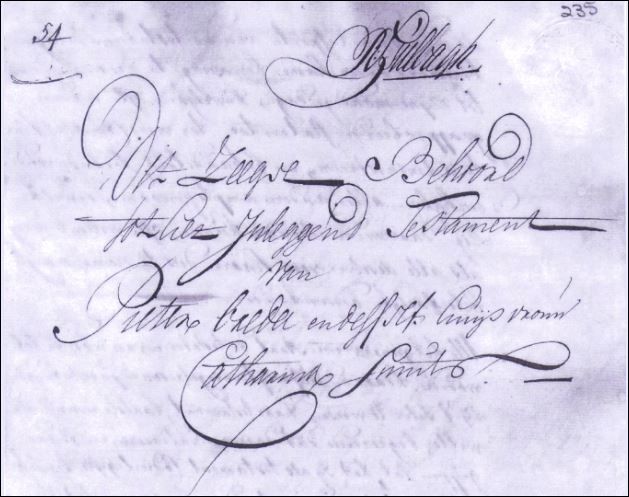 54
235
RTulbagh
Dit Zegel Behoord
tot het Inleggend Testament
van
Pieter en desselfs huijsvrouw
Catharina Smuts